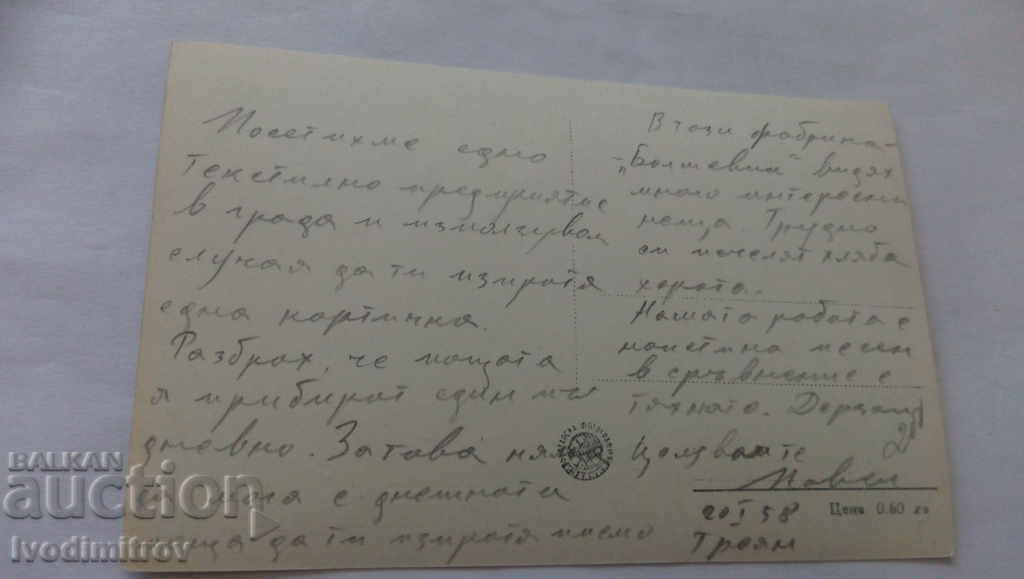 Посетихме едно
текстилно предприятие
в града и използувам
случая да ти изпратя
една картичка.
Разбрах, че пощата
я прибират един път
дневно. Затова няма
да мога с днешната
поща да ти изпратя писмо
В тази фабрика -
"Болшевик" видях
много интересни
неща. Трудно
си печелят хляба
хората.
Нашата работа е
наистина лесна
в сравнение с
тяхната.
Целувам те
Павел
20 I 58
Троян
Цена 0.60 лв
BALKAN
auction
Ivodimitrov